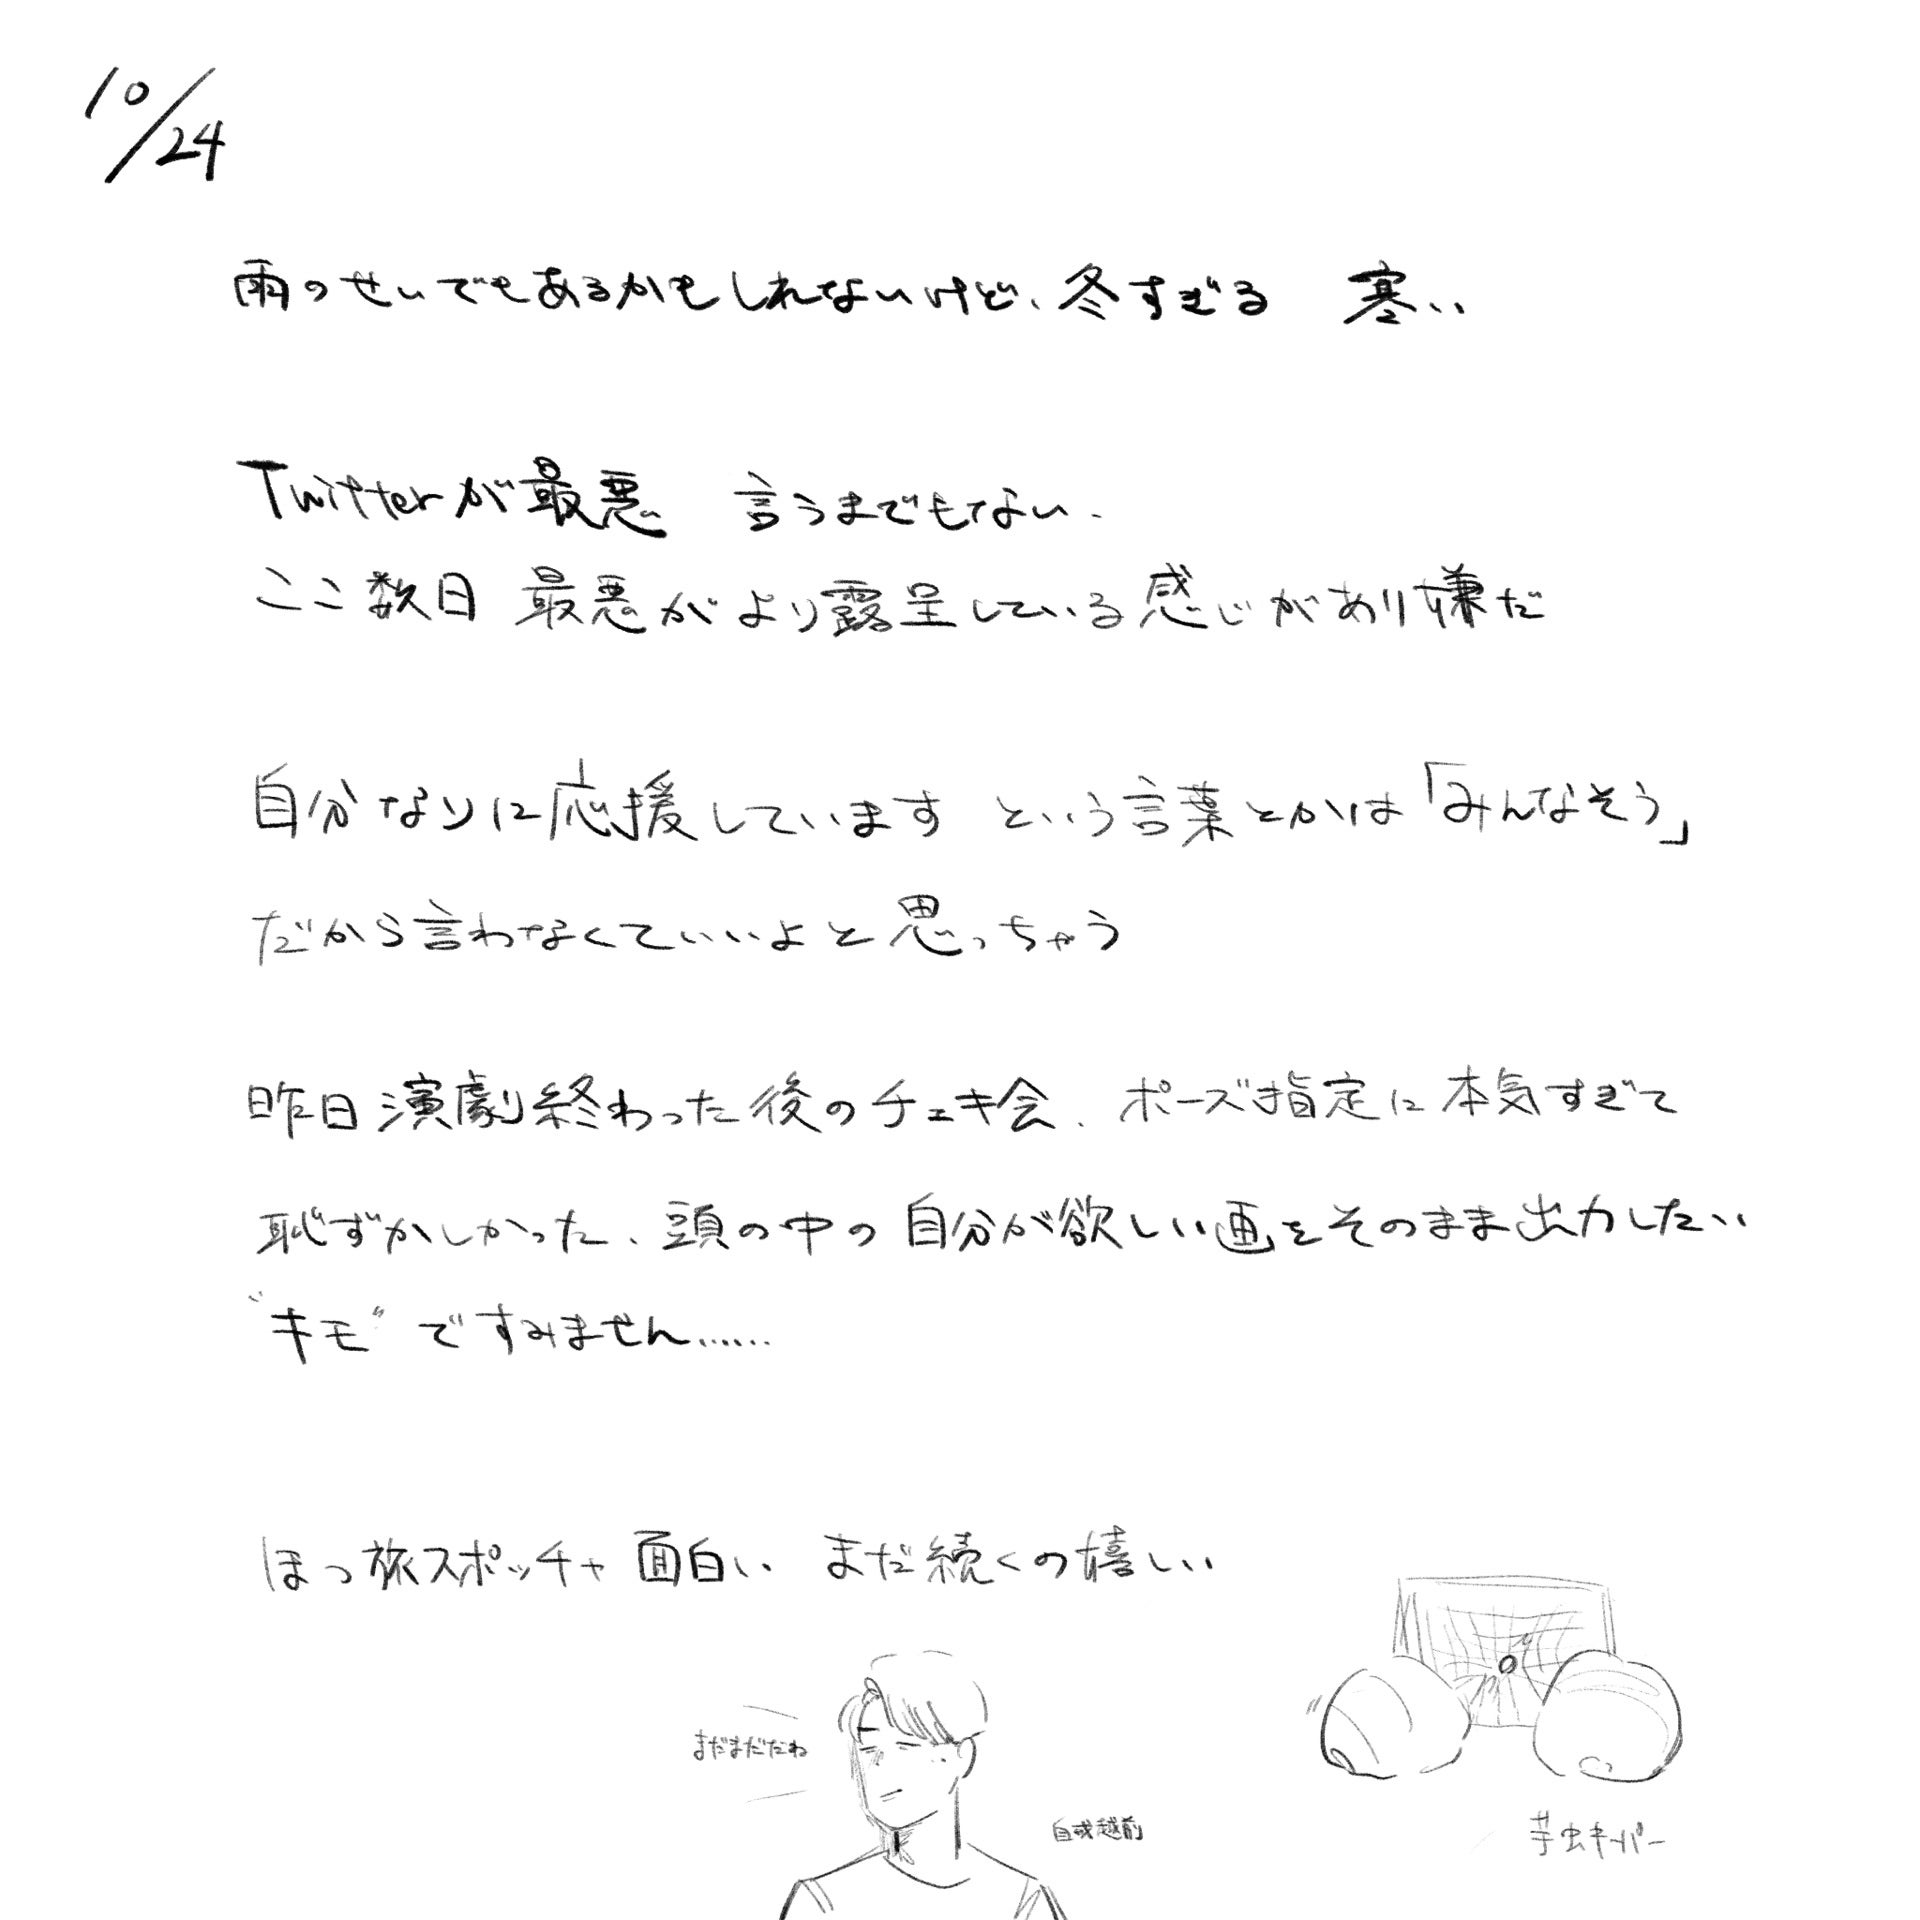 10/24
雨のせいでもあるかもしれないけど、冬すぎる 寒い
Twitterが最悪 言うまでもない、
ここ数日 最悪がより露呈している感じがあり嫌だ
自分なりに応援しています という言葉とかは「みんなそう」
だから言わなくていいよと思っちゃう
昨日演劇終わった後のチェキ会、ポーズ指定に本気すぎて
恥ずかしかった、頭の中の自分が欲しい画をそのまま出力したい
"キモ"ですみません……
ほっ旅スポッチャ面白い まだ続くの嬉しい
まだまだだね
自戒越前
芋虫キーパー